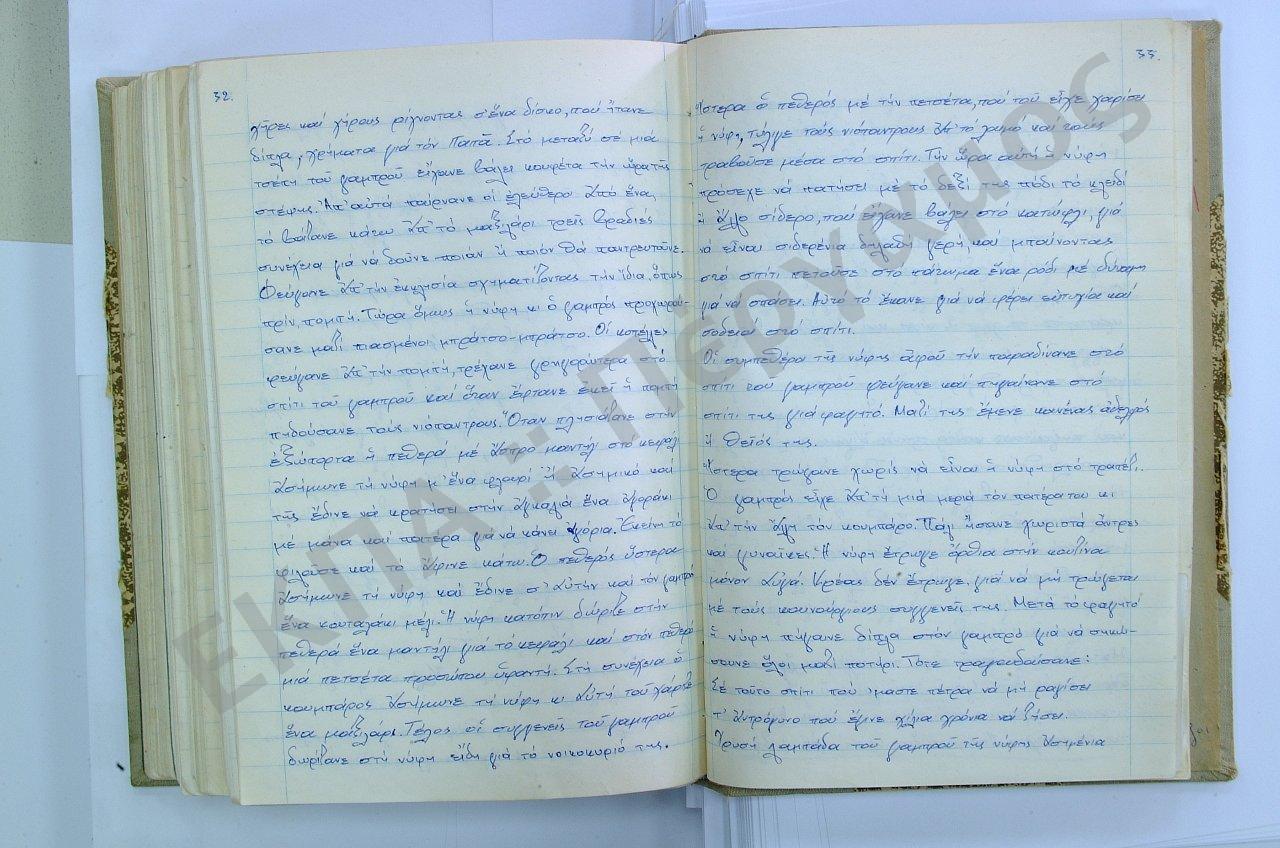 32.
χῆρες καί χήρους ρίχνοντας σ' ἕνα δίσκο, πού ἤτανε
δίπλα, χρήματα γιά τόν Παπᾶ. Στό μεταξύ σέ μιά
τσέπη τοῦ γαμπροῦ εἴχανε βάλει κουφέτα τήν ὥρα τῆς
στέψης. Ἀπ' αὐτά παίρνανε οἱ ἐλεύθεροι ἀπό ἕνα,
τό βάζανε κάτω ἀπ' τό μαξιλάρι τρεῖς βραδιές
συνέχεια γιά νά δοῦνε ποιάν ἤ ποιόν θά παντρευτοῦνε.
Φεύγανε ἀπ' τήν ἐκκλησία σχηματίζοντας τήν ἴδια, ὅπως
πρίν, πομπή. Τώρα ὅμως ἡ νύφη κι ὁ γαμπρός προχωρού-
σανε μαζί πιασμένοι μπράτσο-μπράτσο. Οἱ κοπέλες
φεύγανε ἀπ' τήν πομπή, τρέχανε γρηγορώτερα στό
σπίτι τοῦ γαμπροῦ καί ὅταν ἔρτανε ἐκεῖ ἡ πομπή
πηδούσανε τούς νιόπαντρους. Ὅταν πλησιάζανε στήν
ἐξώπορτα ἡ πεθερά μέ ἄσπρο μαντήλι στό κεφάλι
ἀσήμωνε τή νύφη μ' ἕνα φλουρί ἤ ἀσημικό καί
τῆς ἔδινε νά κρατήσει στήν ἀγκαλιά ἕνα ἀγοράκι
μέ μάνα καί πατέρα γιά νά κάνει ἀγόρια. Ἐκείνη τό
φιλοῦσε καί τό ἄφινε κάτω. Ὁ πεθερός ὕστερα
ἀσήμωνε τή νύφη καί ἔδινε σ' αὐτήν καί τόν γαμπρό
ἕνα κουταλάκι μέλι. Ἡ νύφη κατόπιν δώριζε στήν
πεθερά ἕνα μαντήλι γιά τό κεφάλι καί στόν πεθερό
μιά πετσέτα προσώπου ὑφαντή. Στή συνέχεια ὁ
κουμπάρος ἀσήμωνε τή νύφη κι αὐτή τοῦ χάριζε
ἕνα μαξιλάρι. Τέλος οἱ συγγενεῖς τοῦ γαμπροῦ
δωρίζανε στή νύφη εἴδη γιά τό νοικοκυριό της.
33.
Ὕστερα ὁ πεθερός μέ τήν πετσέτα, πού τοῦ εἶχε χαρίσει
ἡ νύφη, τύλιγε τούς νιόπαντρους ἀπ' τό λαιμό καί τούς
τραβοῦσε μέσα στό σπίτι. Τήν ὥρα αὐτή ἡ νύφη
πρόσεχε νά πατήσει μέ τό δεξί της πόδι τό κλειδί
ἤ ἄλλο σίδερο, πού εἴχανε βάλει στό κατώφλι, γιά
νά εἶναι σιδερένια δηλαδή γερή, καί μπαίνοντας
στό σπίτι πετοῦσε στό πάτωμα ἕνα ρόδι μέ δύναμη
γιά νά σπάσει. Αὐτό τό ἔκανε γιά νά φέρει εὐτυχία καί
σοδειά στό σπίτι.
Οἱ συμπεθέροι τῆς νύφης ἀφοῦ τήν παραδίνανε στό
σπίτι τοῦ γαμπροῦ φεύγανε καί πηγαίνανε στό
σπίτι της γιά φαγητό. Μαζί της ἔμενε κανένας ἀδελφός
ἤ θεῖός της.
Ὕστερα τρώγανε χωρίς νά εἶναι ἡ νύφη στό τραπέζι.
Ὁ γαμπρός εἶχε ἀπ' τή μιά μεριά τόν πατέρα του κι
ἀπ' τήν ἄλλη τόν κουμπάρο. Πάλι ἤσανε χωριστά ἄντρες
καί γυναῖκες. Ἡ νύφη ἔτρωγε ὄρθια στήν κουζίνα
μόνον αὐγά. Κρέας δέν ἔτρωγε, γιά νά μή τρώγεται
μέ τούς καινούργιους συγγενεῖς της. Μετά τό φαγητό
ἡ νύφη πήγαινε δίπλα στόν γαμπρό γιά νά σηκώ-
σουνε ὅλοι μαζί ποτήρι. Τότε τραγουδούσανε:
Σέ τοῦτο σπίτι πού 'μαστε πέτρα νά μή ραγίσει
τ' ἀντρόγυνο πού ἔγινε χίλια χρόνια νά ζήσει.
Χρυσή λαμπάδα τοῦ γαμπροῦ τῆς νύφης ἀσημένια
ΕΚΠΑ :: Πέργαμος